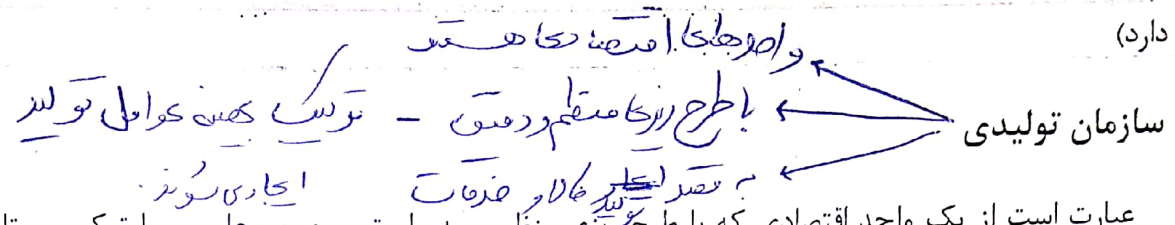 دارد)
واحدهای اقتصادی هستند
سازمان تولیدی
با طرح ریزی منظم و دقیق - ترکیب بهینه عوامل تولید
به قصد تولید کالا و خدمات ایجاد می‌شوند.
عبارت است از یک واحد اقتصادی که با طرح